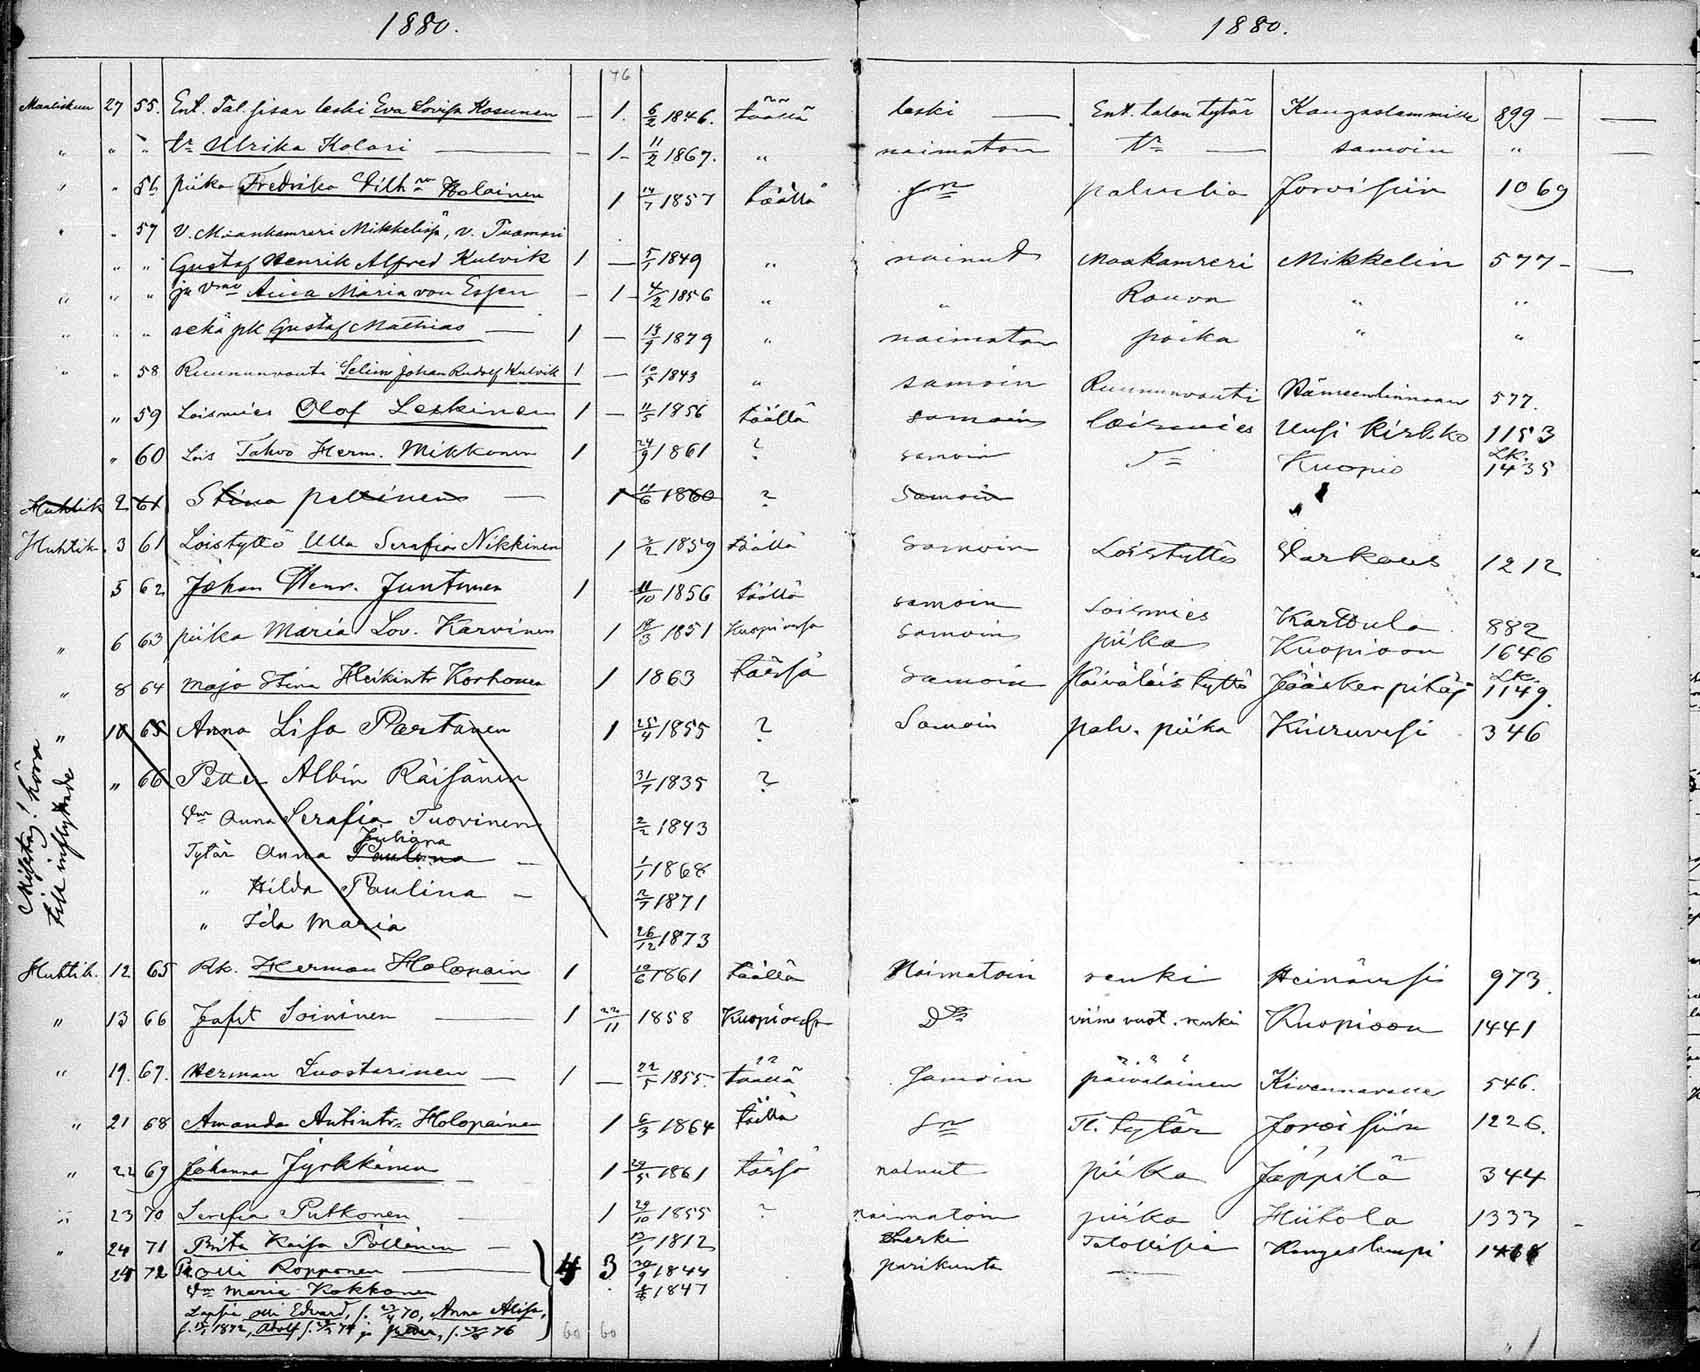 1880. 1880.
76
Maaliskuu 27 55. Ent. Tal. sisar leski Eva Lovisa Kosunen — 1. 6/2 1846. täällä leski — Ent. talon tytär Kangaslammille 899 — —
" " " tr Ulrika Kolari — 1 - 11/2 1867. " naimaton tr — samoin " —
" " 56 piika Fredrika Vilh:na Holainen 1 14/7 1857 täällä palvelia Jorvisiin 1069
" " 57 V. Maankamreri Mikkelissä, v. Tuomari
" " Gustaf Henrik Alfred Kulvik 1 — 5/1 1849 " nainut Maakamreri Mikkelin 577 - —
" " " ja vmo Aina Maria von Essen — 1 - 4/2 1856 " " Rouva " "
" " " sekä pk Gustaf Mathias — 1 — 19/9 1879 " naimaton poika " "
" " 58 Ruununvouti Selim Johan Rudolf Kulvik 1 — 10/5 1843 " samoin Ruununvouti Hämeenlinnaan 577.
" 59 Loismies Olof Leskinen 1 — 11/5 1856 täällä samoin loismies Uusi Kirkko 1153
" 60 Lois Tahvo Herm. Mikkonen 1 24/9 1861 ? samoin Kuopio Lk. 1435
Huhtik 2 61 Stina peltinen — 1 11/6 1860 ? Samoin
Huhtik. 3 61 Loistyttö Ulla Serafia Nikkinen 1 2/2 1859 täällä Samoin Loistyttö Varkaus 1212
5 62 Johan Henr. Juntunen 1 11/10 1856 täällä samoin Loismies Karttula 882
" 6 63 piika Maria Lov. Karvinen 1 18/3 1851 Kuopiossa samoin piika Kuopioon 1646
" 8 64 Maja Stina Heikintr Korhonen 1 1863 tässä samoin Päiväläis tyttö Jääsken pitäj Lk. 1149.
" 10 65 Anna Lisa Partanen 1 25/4 1855 ? Samoin palv. piika Kiuruvesi 346
Misstag! höra
till inflyttade
" 66 Petter Albin Räisänen 31/7 1835 ?
Vmo Anna Serafia Tuovinen 2/2 1843
Juliana
Tytär Anna Paulina — 1/1 1868
" Hilda Paulina — 2/7 1871
" Ida Maria 26/12 1873
Huhtik. 12 65 Rk. Herman Holopain 1 10/6 1861 täällä Naimatoin renki Heinävesi 973.
" 13 66 Jafet Soininen — 1 22/11 1858 Kuopiossa D:o viime vuot. renki Kuopioon 1441
" 19. 67. Herman Luostarinen — 1 — 22/5 1855. täällä Samoin päiväläinen Kivennavalle 546.
" 21 68 Amanda Antintr. Holopainen 1 6/3 1864 täällä Tl. tytär Joroisiin 1226.
" 22 69 Johanna Jyrkkänen — 1 29/5 1861 tässä nainut piika Jäppilä 344
" 23 70 Serafia Putkonen — 1 29/10 1855 ? naimatoin piika Hiitola 1333
" 24 71 Brita Kaisa Pöllänen — 13/1 1812 Leski Talollisia Kangaslampi
24 72 Olli Ropponen — 4 3 20/9 1844 parikunta
Vmo Maria Kokkonen 1847
Lapsia Olli Edvard, s. 70, Anna Alisa,
s. 1872, Adolf s. 74 ja Peter, s. 76
60 60